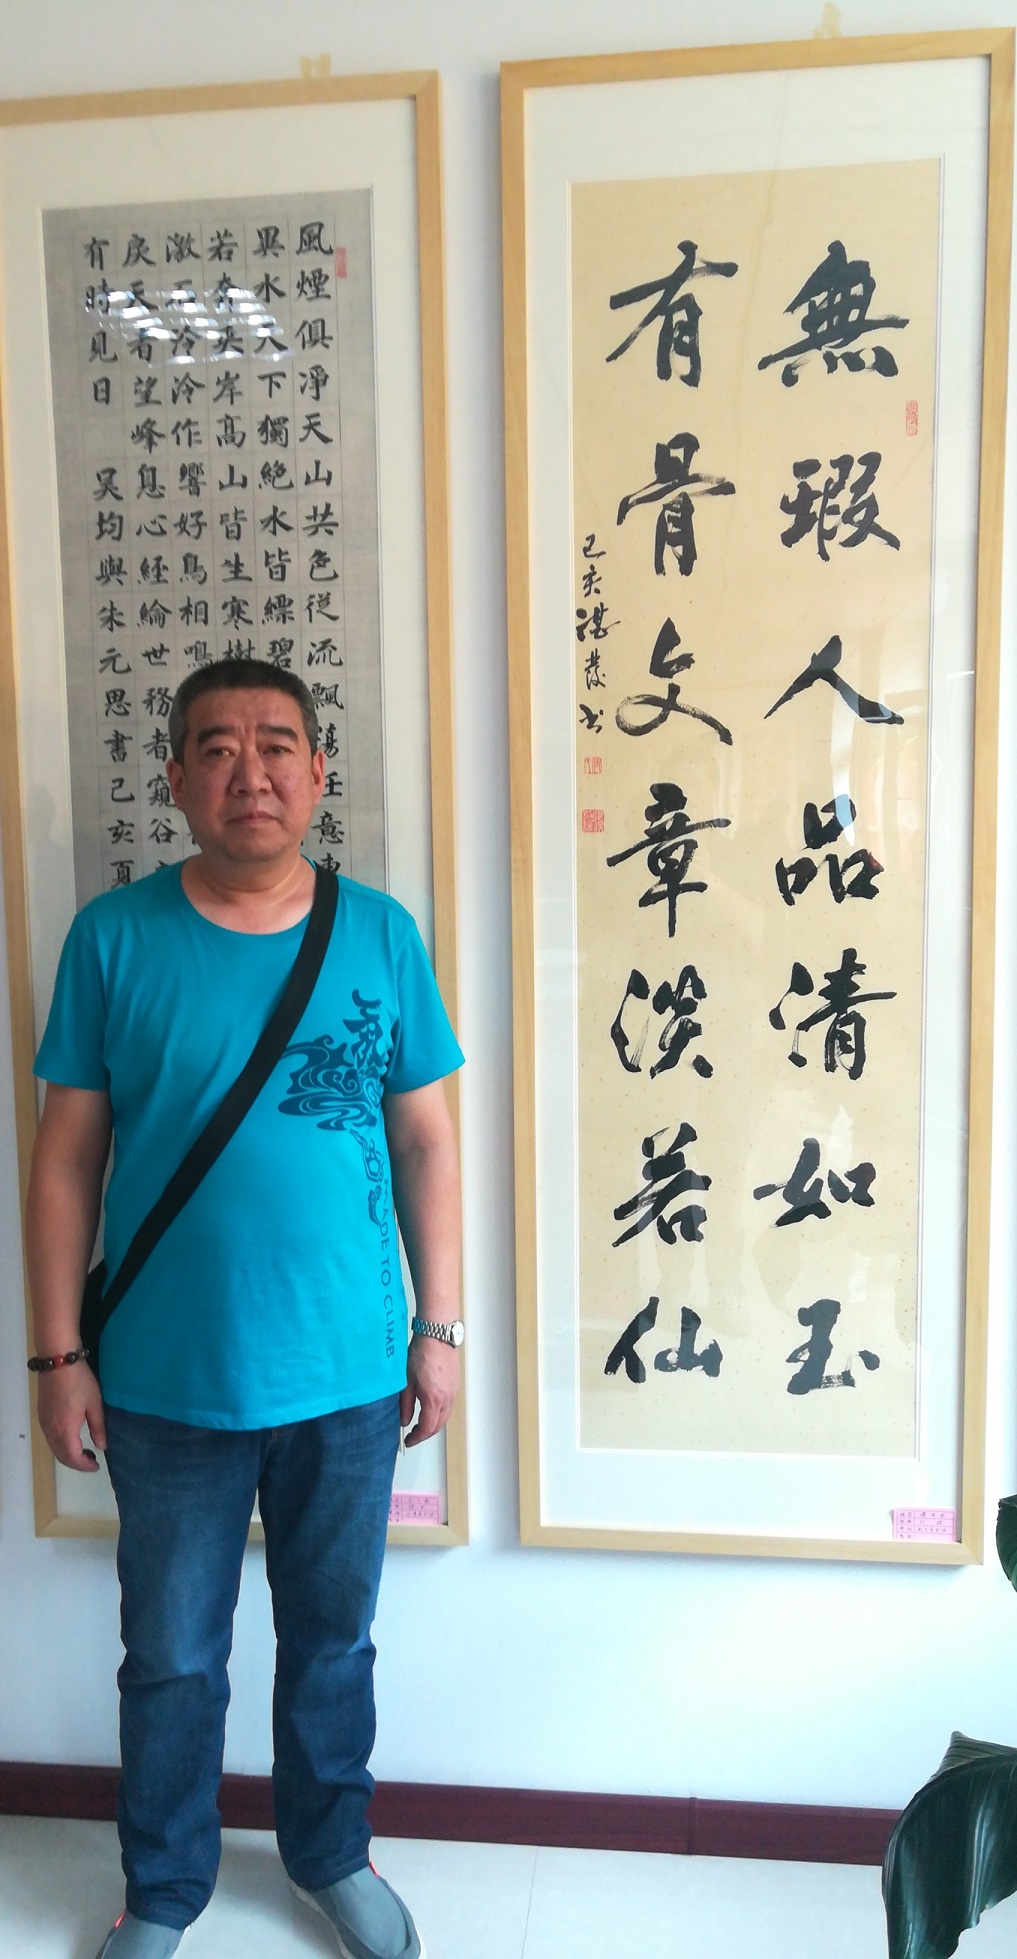 無瑕人品清如玉
有骨文章淡若仙
己亥諶书
風煙俱淨天山共色從流飄蕩任意東
異水天下獨絶水皆縹碧
若奔夾岸高山皆生寒樹
激石泠泠作響好鳥相鳴
戾天者望峰息心經綸世務者窺谷
有時見日 吴均與朱元思書己亥夏
MADE TO CLIMB